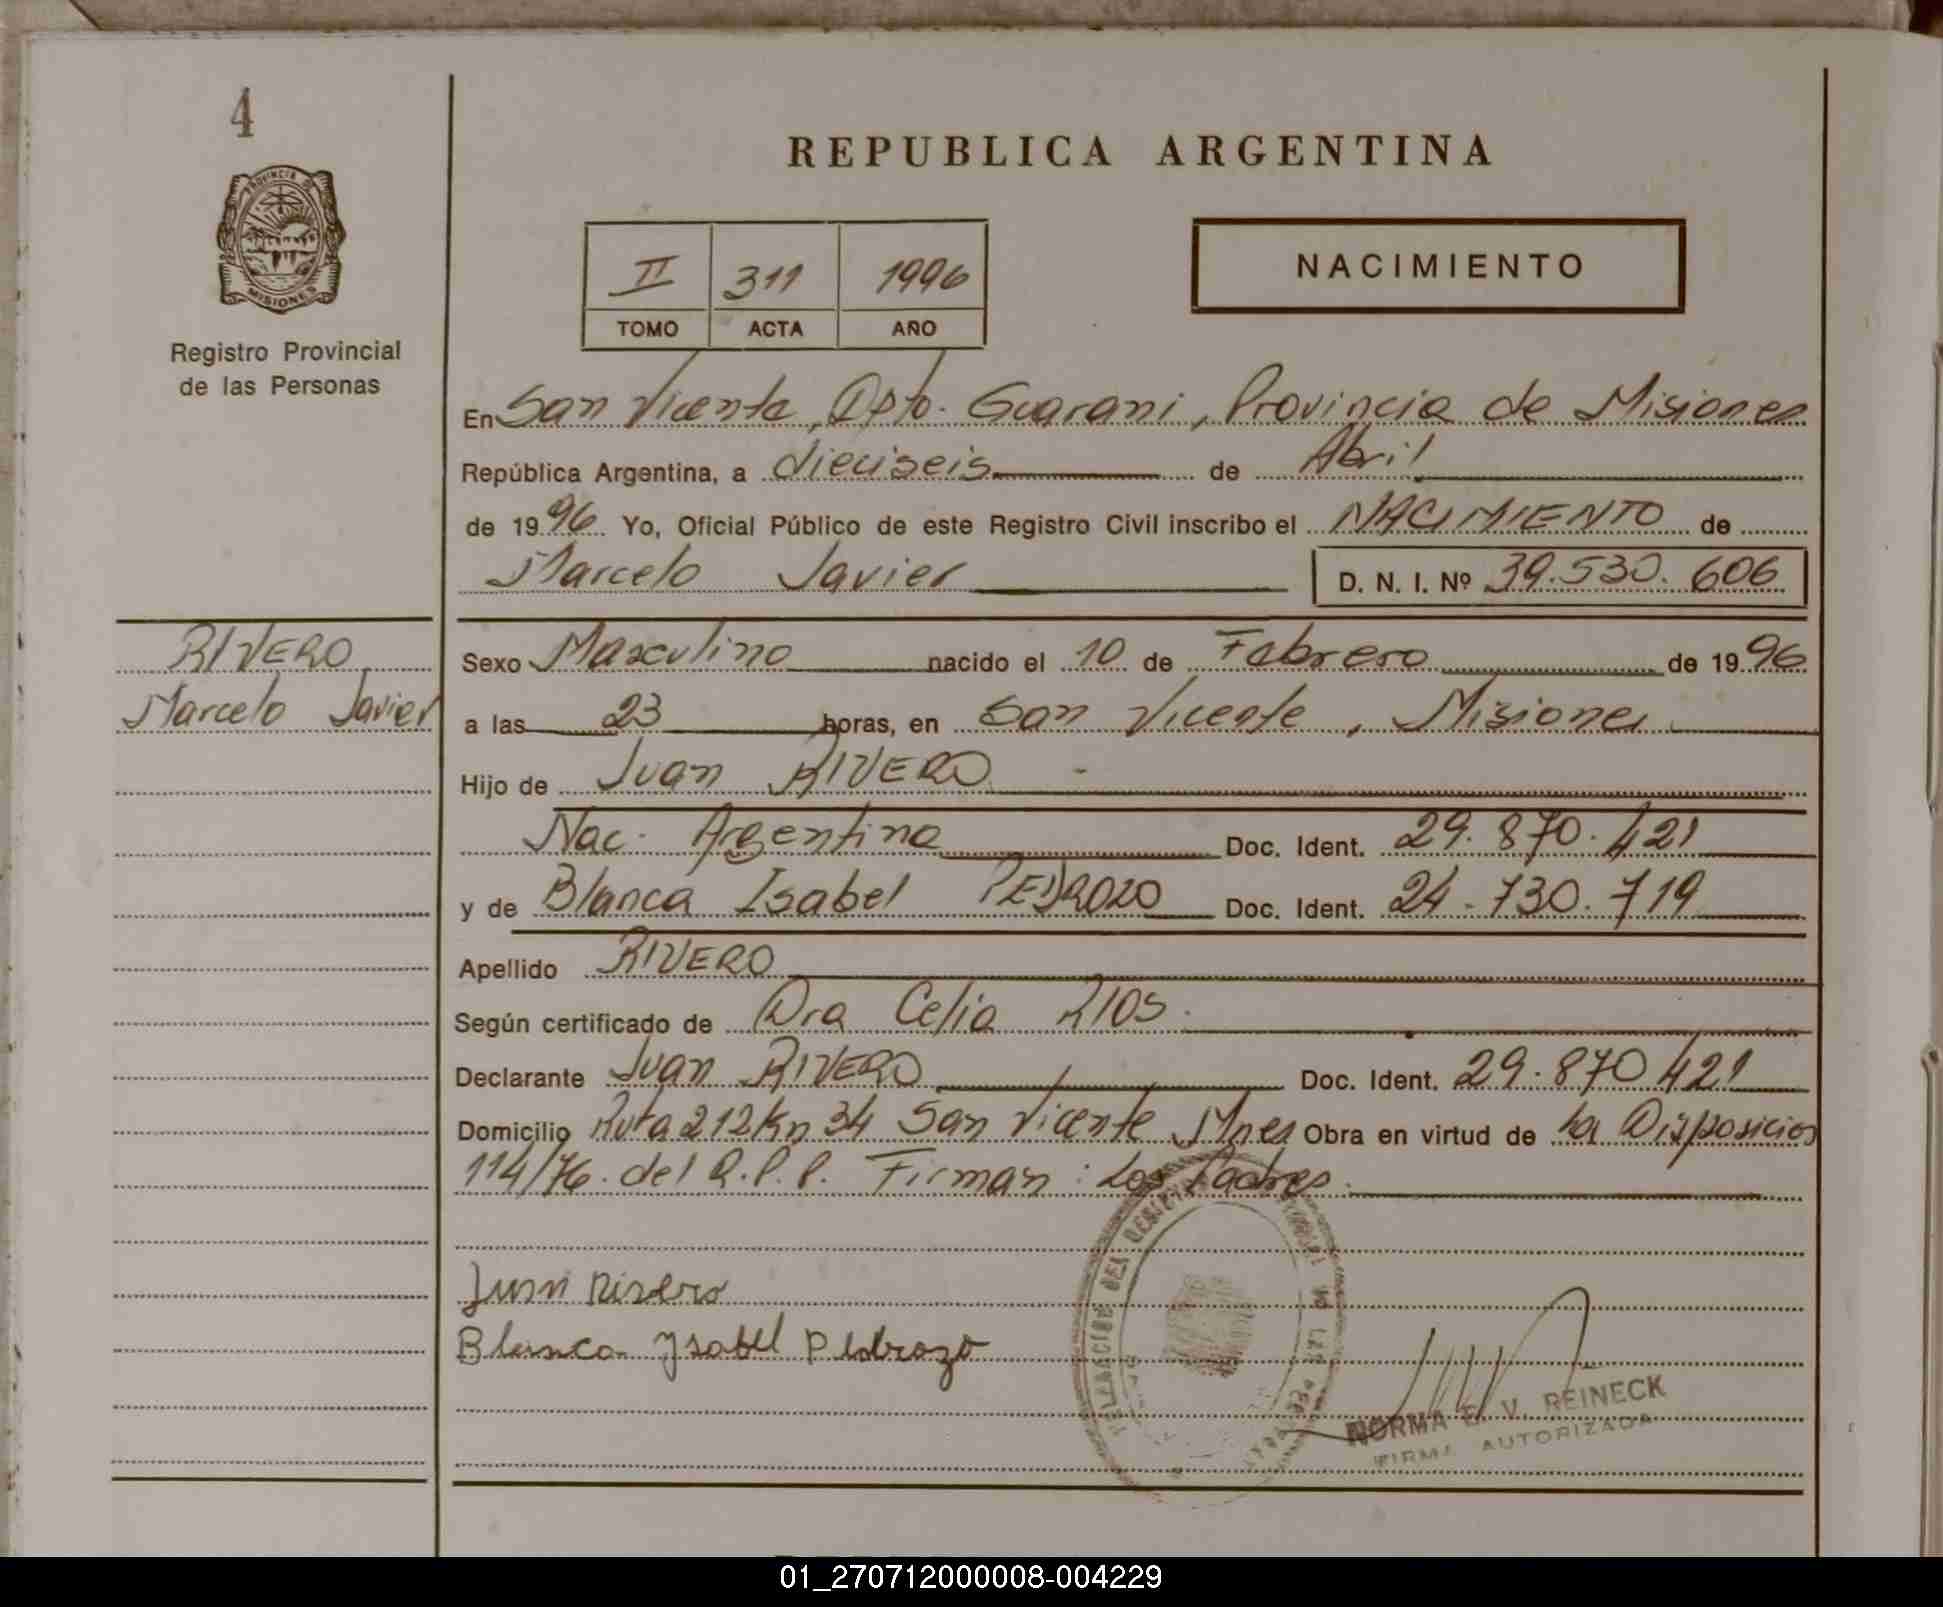 4
PROVINCIA DE
MISIONES
Registro Provincial
de las Personas
REPUBLICA ARGENTINA
II 311 1996
TOMO ACTA AÑO
NACIMIENTO
En San Vicente, Dpto. Guarani, Provincia de Misiones
República Argentina, a dieciseis de Abril
de 1996 Yo, Oficial Público de este Registro Civil inscribo el NACIMIENTO de
Marcelo Javier D. N. I. Nº 39.530.606
RIVERO
Marcelo Javier
Sexo Masculino nacido el 10 de Febrero de 1996
a las 23 horas, en San Vicente, Misiones
Hijo de Juan RIVERO
Nac. Argentina Doc. Ident. 29.870.421
y de Blanca Isabel PEDROZO Doc. Ident. 24.730.719
Apellido RIVERO
Según certificado de Dra Celia RIOS.
Declarante Juan RIVERO Doc. Ident. 29.870.421
Domicilio Ruta 212 Km 34 San Vicente Mnes Obra en virtud de la Disposicion
114/76. del R.P.P. Firman: Los Padres.
Juan Rivero
Blanca Ysabel Pedrozo
NORMA E. V. REINECK
FIRMA AUTORIZADA
01_270712000008-004229